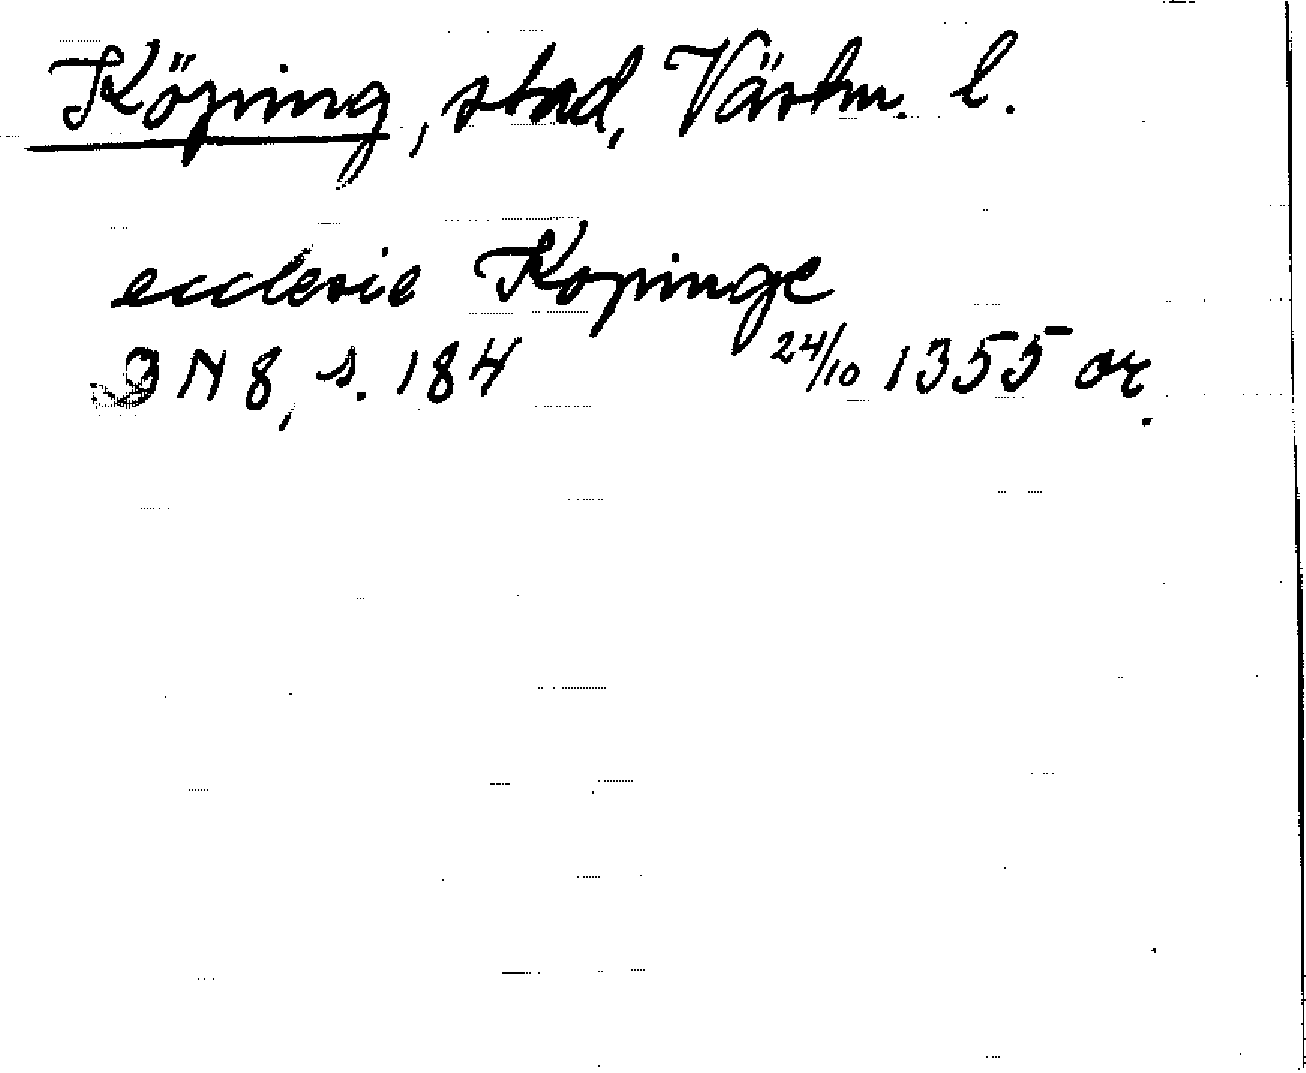 Köping, stad, Västm. l.
ecclesie Kopinge
DN 8, s. 184 24/10 1355 or.